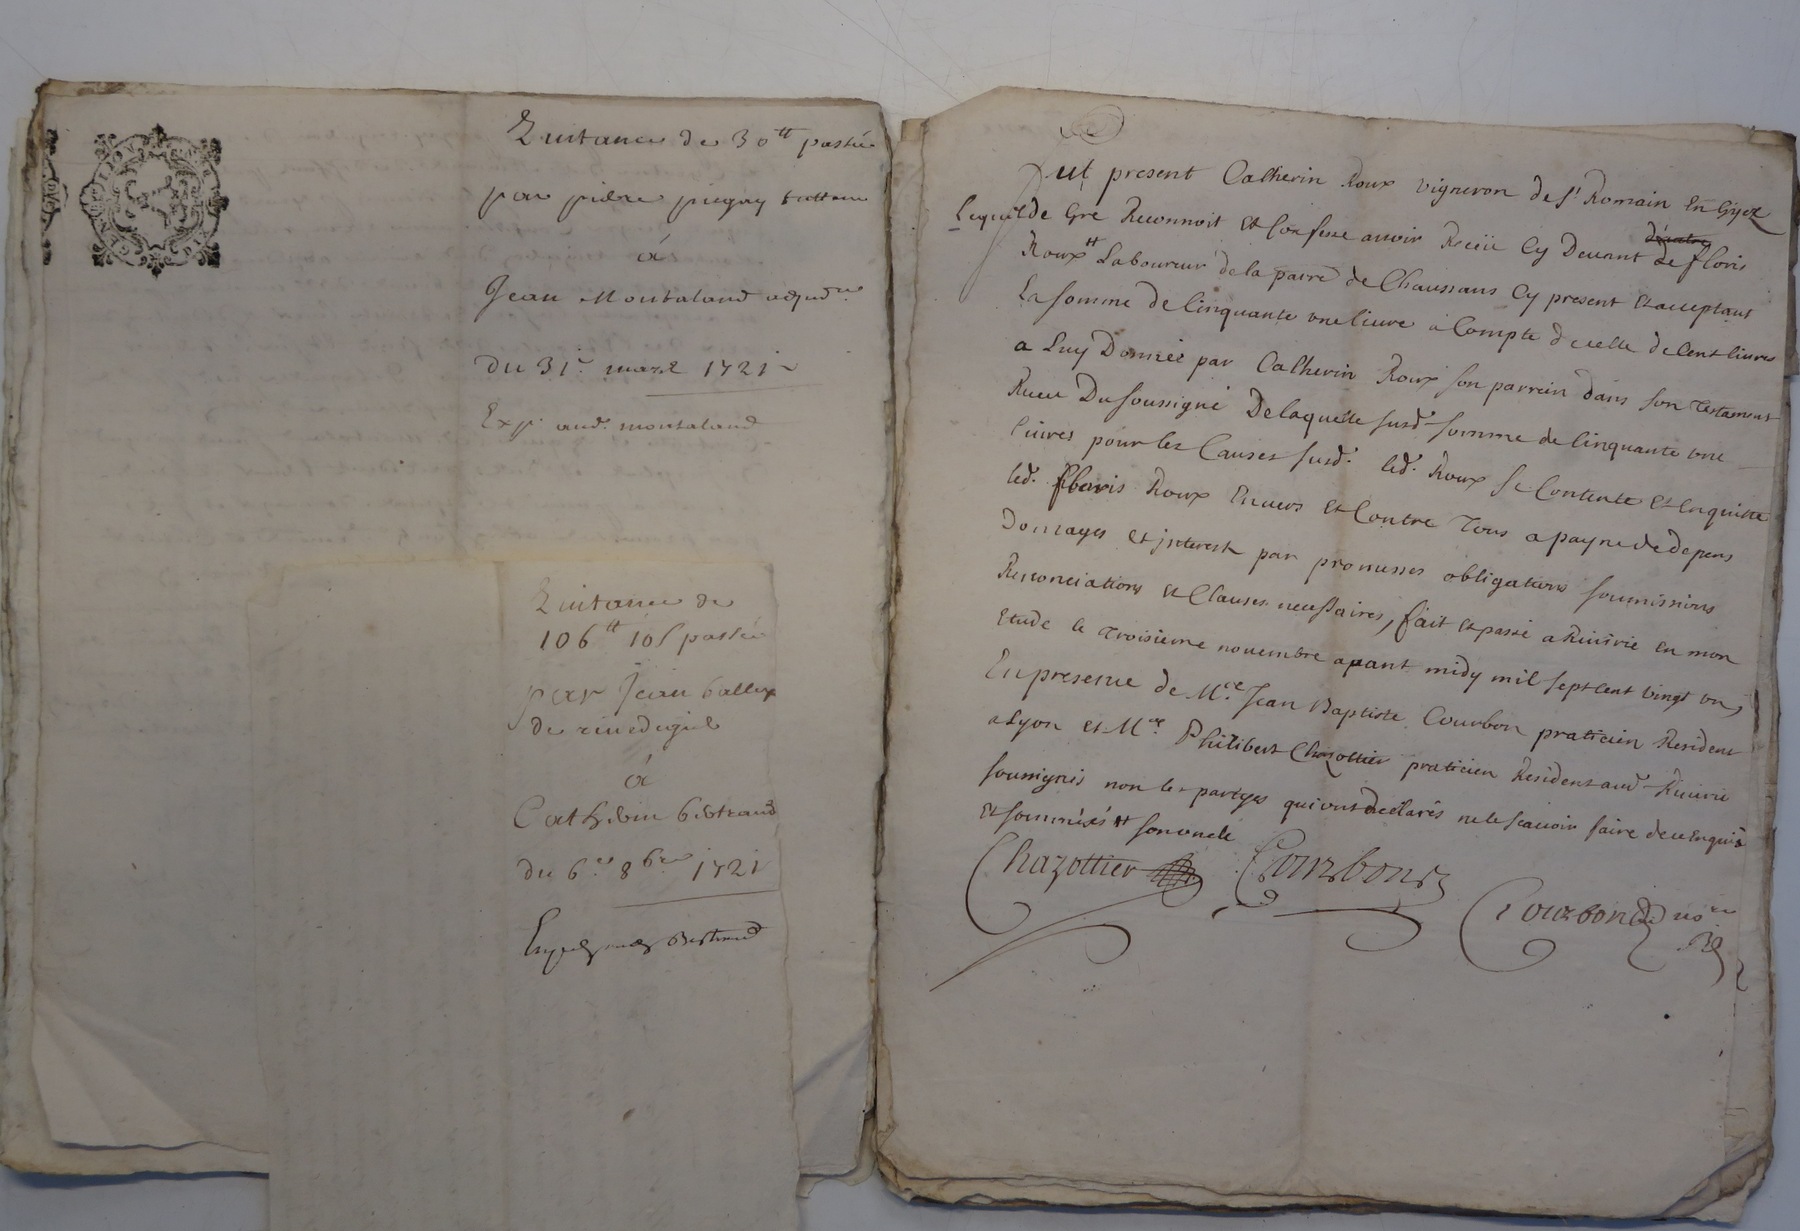 Quitance de 30tt passée
par pierre
á
Jean Montaland adjudre.
du 31e. mars 1721
Exp. aud. montaland
Quitance de
106tt 10s passée
par Jean
de rivedegié
á
Catherin bertrand
du 6e. 8bre 1721
Expedy aud. Bertrand
Fut present Catherin Roux vigneron de st Romain En Gyez
Lequel de Gre Reconnoit et Confesse avoir Receü Cy Devant de floris
Roux Laboureur de la parre de Chaussans Cy present et acceptant
La somme de Cinquante une livre a Compte de celle de Cent livres
a Luy Donnée par Catherin Roux son parrein dans son testament
Receu Du soussigné De laquelle susd. somme de Cinquante une
livres pour les Causes susd. led. Roux se Contente et En quitte
led. floris Roux Envers et Contre Tous a payne de depens
Domages et jnterests par promesses obligations soumissions
Renonciations et Clauses necessaires, fait et passé a Riverie en mon
Etude le Troisieme novembre avant midy mil sept cent vingt un,
En presence de Mre. Jean Baptiste Courbon praticien Resident
a Lyon et Mre. Philibert Chazottier praticien Resident aud. Riverie
soussignés non les partyes qui ont declarés ne le scavoir faire de ce Enquis
Et sommés
Chazottier Courbon
Courbon nore